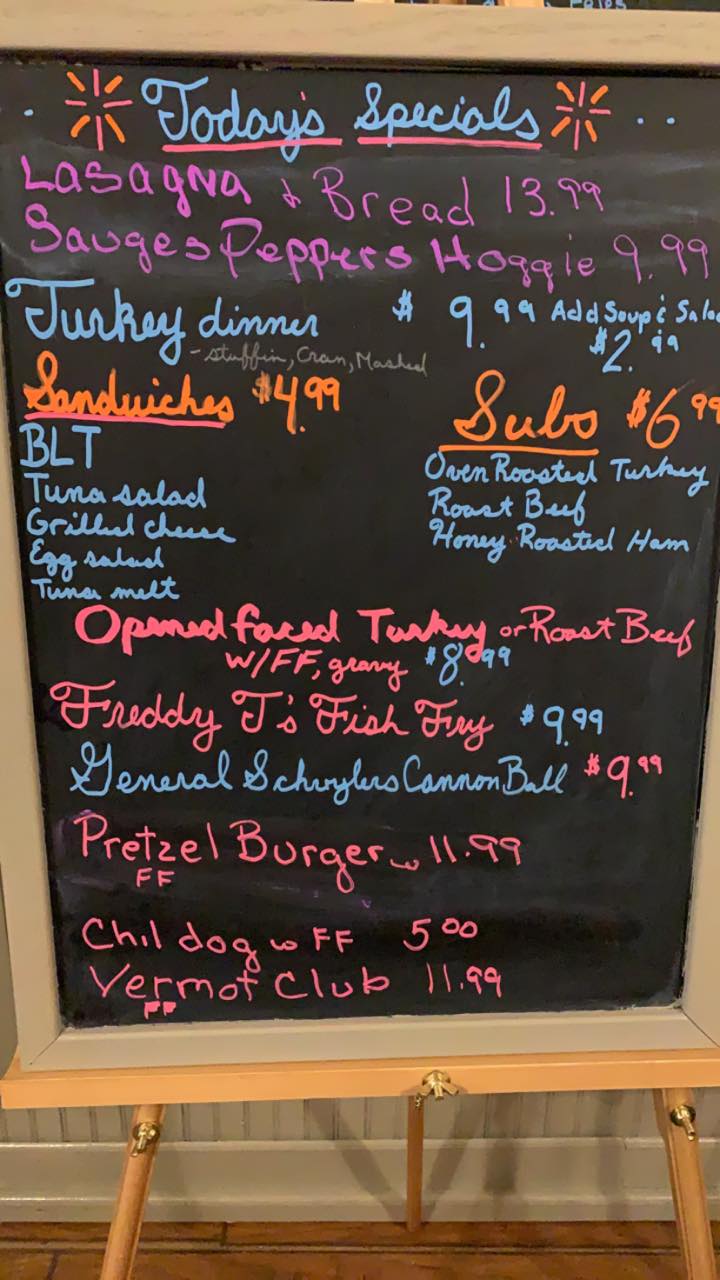 Today's Specials
Lasagna & Bread 13.99
Sauges Peppers Hoggie 9.99
Turkey dinner $9.99 Add Soup & Salad
$2.99
-stuffin, Cran, Mashed
Sandwiches $4.99
Subs $6.99
BLT
Oven Roasted Turkey
Tuna salad
Roast Beef
Grilled cheese
Honey Roasted Ham
Egg salad
Tuna melt
Opened faced Turkey or Roast Beef
w/FF, gravy $8.99
Freddy T's Fish Fry $9.99
General Schuylers Cannon Ball $9.99
Pretzel Burger w 11.99
FF
Chil dog w FF 5.00
Vermot Club 11.99
FF